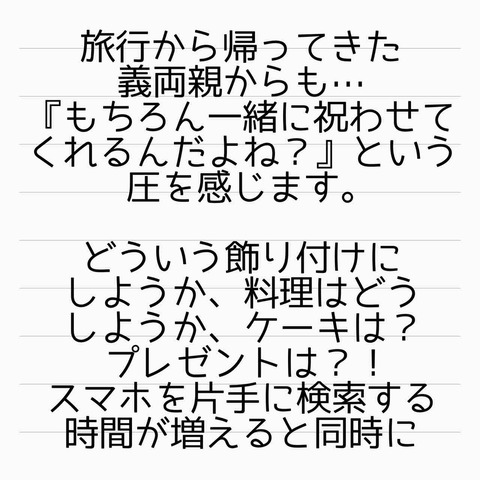 旅行から帰ってきた
義両親からも…
『もちろん一緒に祝わせて
くれるんだよね？』という
圧を感じます。
どういう飾り付けに
しようか、料理はどう
しようか、ケーキは？
プレゼントは？！
スマホを片手に検索する
時間が増えると同時に